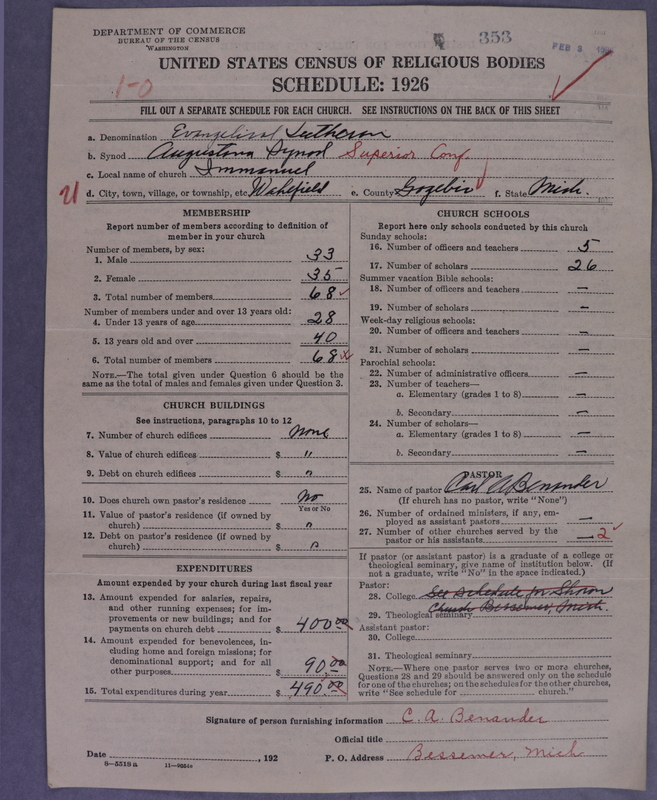 DEPARTMENT OF COMMERCE
BUREAU OF THE CENSUS
WASHINGTON
353
FEB 3
UNITED STATES CENSUS OF RELIGIOUS BODIES
SCHEDULE: 1926
1-0
FILL OUT A SEPARATE SCHEDULE FOR EACH CHURCH. SEE INSTRUCTIONS ON THE BACK OF THIS SHEET
a. Denomination Evangelical Lutheran
b. Synod Augustana Synod Superior Conf.
c. Local name of church Immanuel
d. City, town, village, or township, etc. Wakefield e. County Gogebic f. State Mich.
MEMBERSHIP
Report number of members according to definition of member in your church
Number of members, by sex:
1. Male 33
2. Female 35
3. Total number of members 68
Number of members under and over 13 years old:
4. Under 13 years of age 28
5. 13 years old and over 40
6. Total number of members 68
NOTE.—The total given under Question 6 should be the
same as the total of males and females given under Question 3.
CHURCH BUILDINGS
See instructions, paragraphs 10 to 12
7. Number of church edifices None
8. Value of church edifices $ "
9. Debt on church edifices $ "
10. Does church own pastor's residence No
Yes or No
11. Value of pastor's residence (if owned by
church) $ "
12. Debt on pastor's residence (if owned by
church) $ "
EXPENDITURES
Amount expended by your church during last fiscal year
13. Amount expended for salaries, repairs,
and other running expenses; for im-
provements or new buildings; and for
payments on church debt $ 400.00
14. Amount expended for benevolences, in-
cluding home and foreign missions; for
denominational support; and for all
other purposes $ 90.00
15. Total expenditures during year $ 490.00
CHURCH SCHOOLS
Report here only schools conducted by this church
Sunday schools:
16. Number of officers and teachers 5
17. Number of scholars 26
Summer vacation Bible schools:
18. Number of officers and teachers —
19. Number of scholars —
Week-day religious schools:
20. Number of officers and teachers —
21. Number of scholars —
Parochial schools:
22. Number of administrative officers —
23. Number of teachers—
a. Elementary (grades 1 to 8) —
b. Secondary —
24. Number of scholars—
a. Elementary (grades 1 to 8) —
b. Secondary —
PASTOR
25. Name of pastor Carl A Benander
(If church has no pastor, write "None")
26. Number of ordained ministers, if any, em-
ployed as assistant pastors —
27. Number of other churches served by the
pastor or his assistants — 2
If pastor (or assistant pastor) is a graduate of a college or
theological seminary, give name of institution below. (If
not a graduate, write "No" in the space indicated.)
Pastor:
28. College See schedule for Sharon
29. Theological seminary Church Bessemer, Mich.
Assistant pastor:
30. College
31. Theological seminary
NOTE.—Where one pastor serves two or more churches,
Questions 28 and 29 should be answered only on the schedule
for one of the churches; on the schedules for the other churches,
write "See schedule for church."
Signature of person furnishing information C. A. Benander
Official title
Date , 192 P. O. Address Bessemer, Mich
8—5518 a